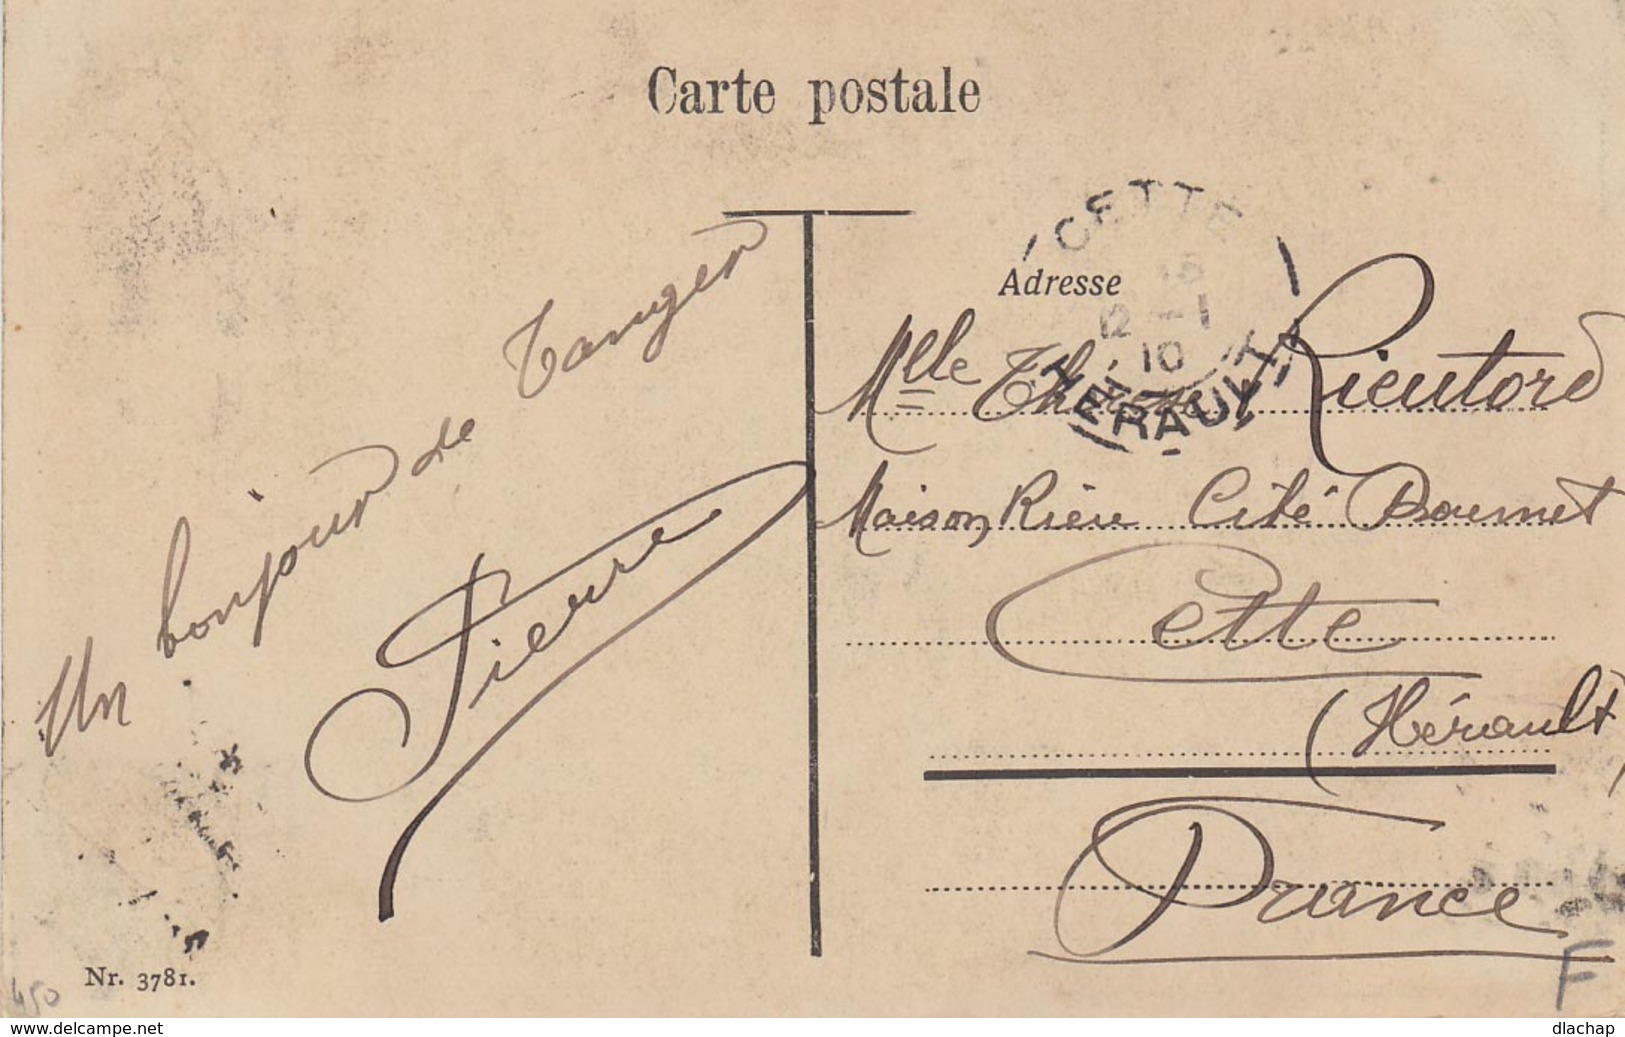 Carte postale
CETTE
12 - 1
10
HERAULT
Adresse
Un bonjour de Tanger
Pierre
Mlle Thérèse Rieutord
Maison Rieu Cité Doumet
Cette
(Hérault)
France
Nr. 3781.
450
F
www.delcampe.net
dlachap